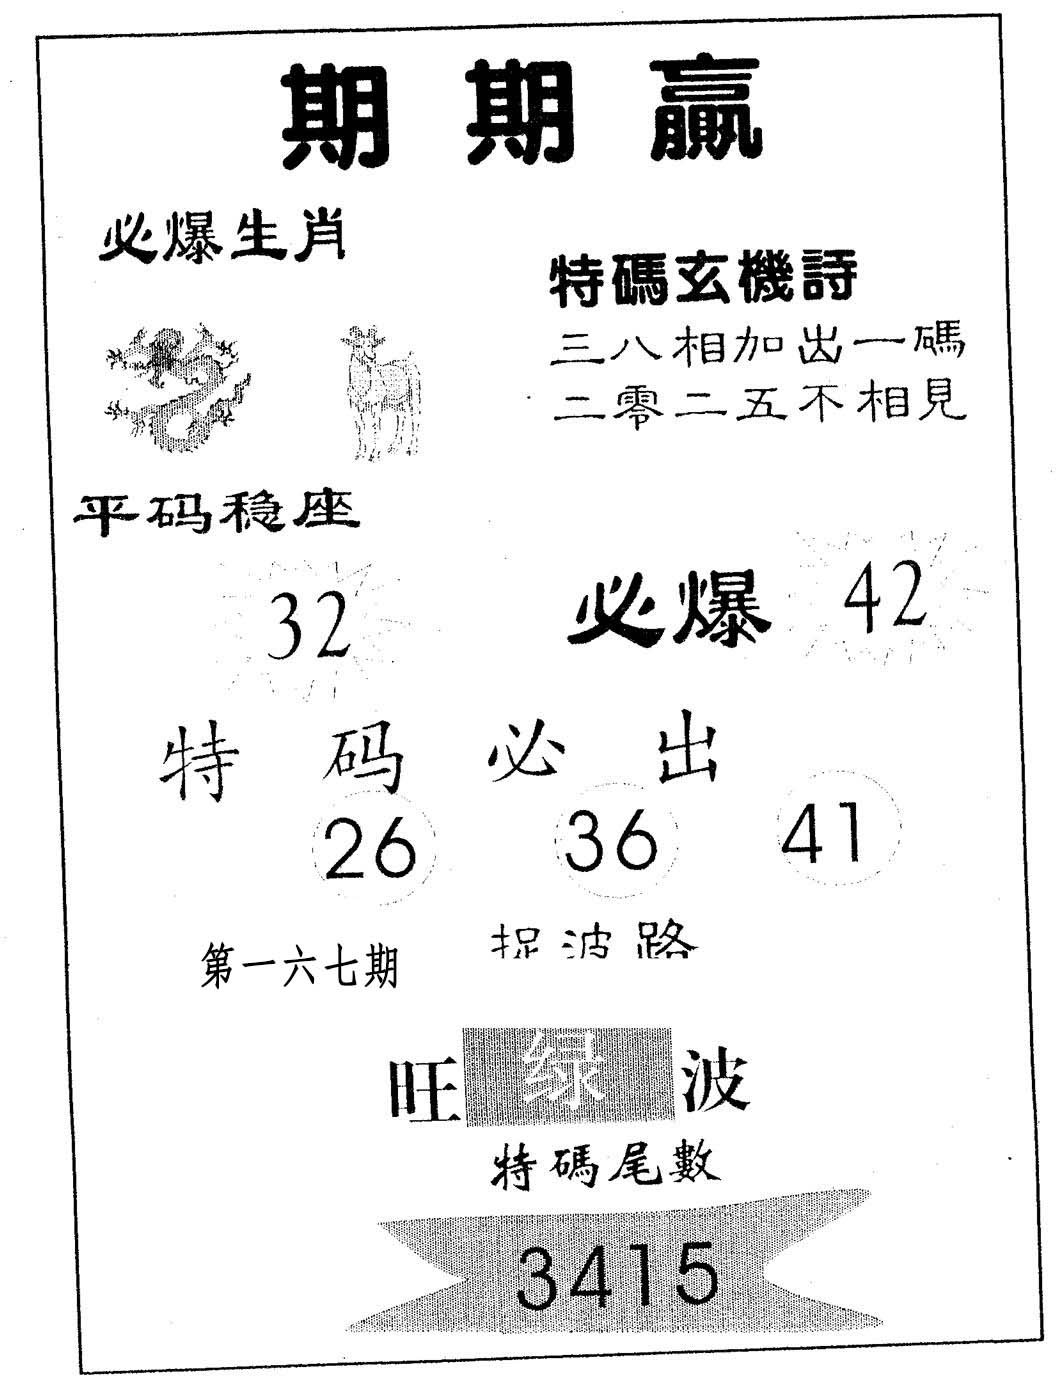 期期贏
必爆生肖
特碼玄機詩
三八相加出一碼
二零二五不相見
平码稳座
32
必爆 42
特码必出
26 36 41
第一六七期
捉波路
旺 绿 波
特碼尾數
3415